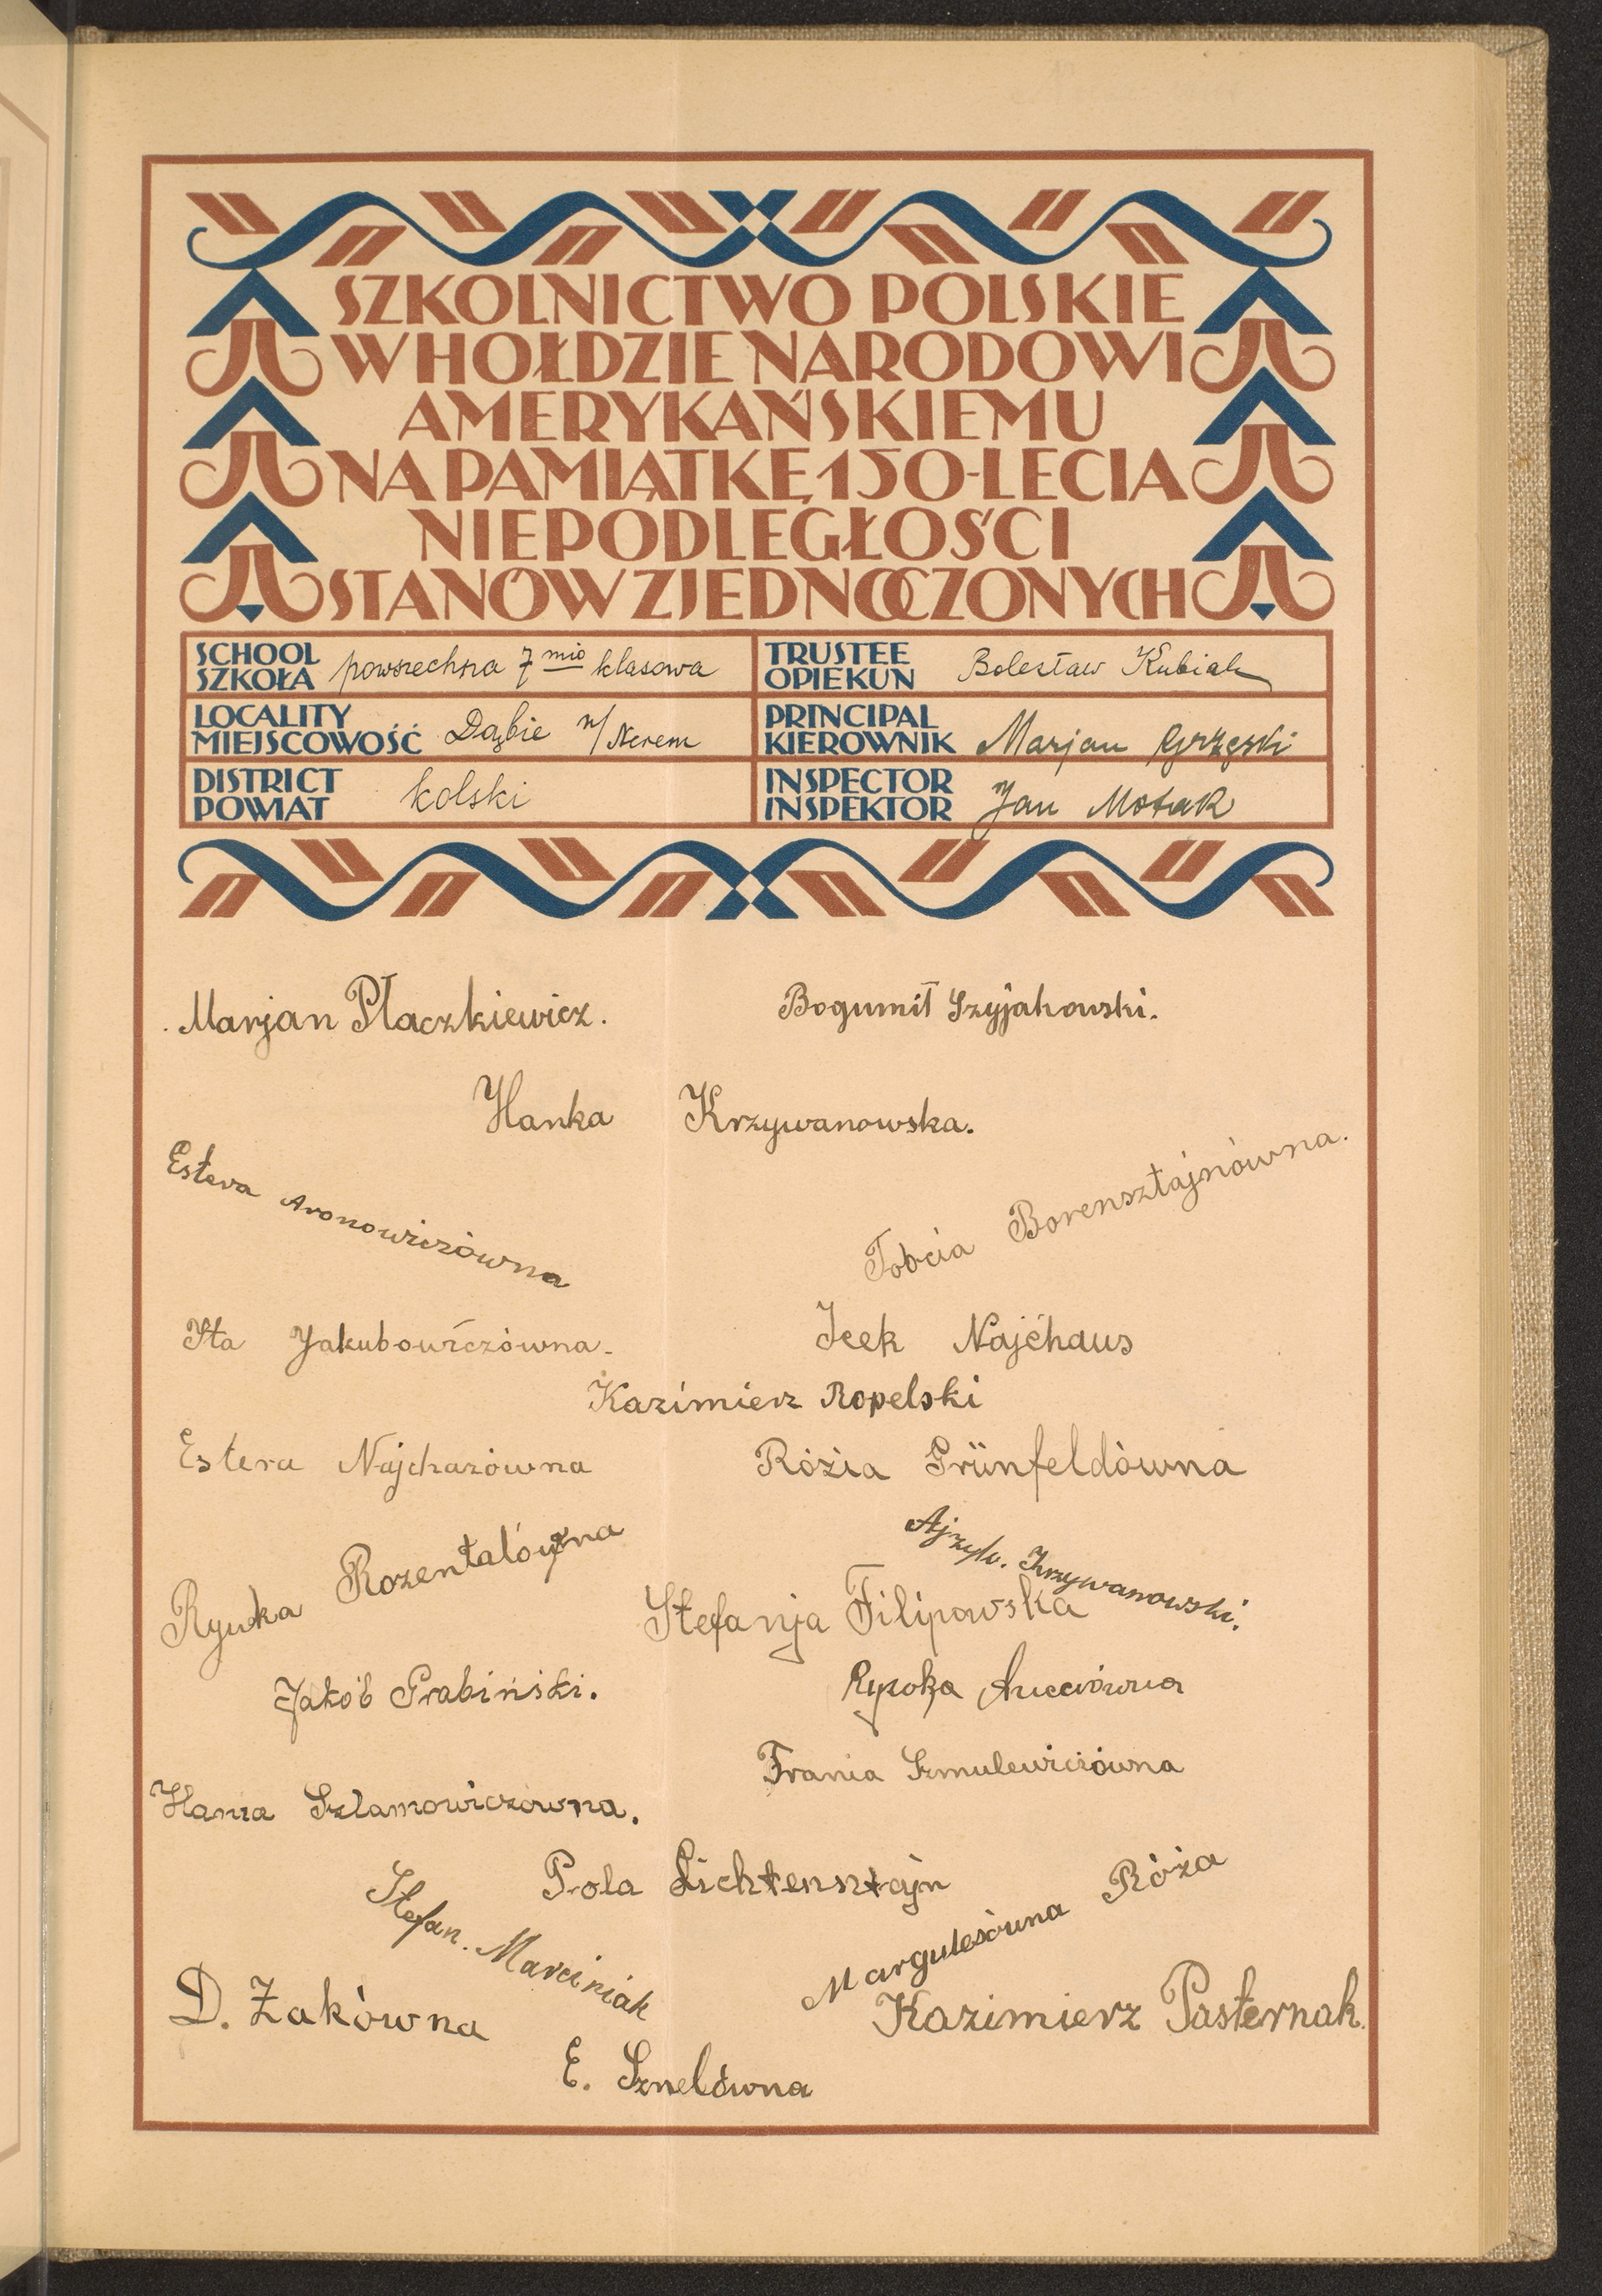 SZKOLNICTWO POLSKIE
W HOŁDZIE NARODOWI
AMERYKAŃSKIEMU
NA PAMIĄTKĘ 150-LECIA
NIEPODLEGŁOŚCI
STANÓW ZJEDNOCZONYCH
SCHOOL
SZKOŁA powszechna 7 mio klasowa
TRUSTEE
OPIEKUN Bolesław Kubiak
LOCALITY
MIEJSCOWOŚĆ Dąbie n/Nerem
PRINCIPAL
KIEROWNIK Marjan
DISTRICT
POWIAT kolski
INSPECTOR
INSPEKTOR Jan Motak
Marjan Płaczkiewicz.
Bogumił Szyjakowski.
Hanka Krzywanowska.
Estera Aronowiczówna
Tobcia Borensztajnówna.
Ita Jakubowiczówna.
Icek Najchaus
Kazimierz Ropelski
Estera Najchazówna
Rózia Grünfeldówna
Rywka Rozentalówna
Ajzyk. Krzywanowski.
Stefanja Filipowska
Jakób Grabiński.
Frania Szmulewiczówna
Hania Szlamowiczówna.
Pola Lichtensztajn
Stefan. Marciniak
Margulesówna Róża
D. Żakówna
Kazimierz Pasternak.
E. Sznelówna